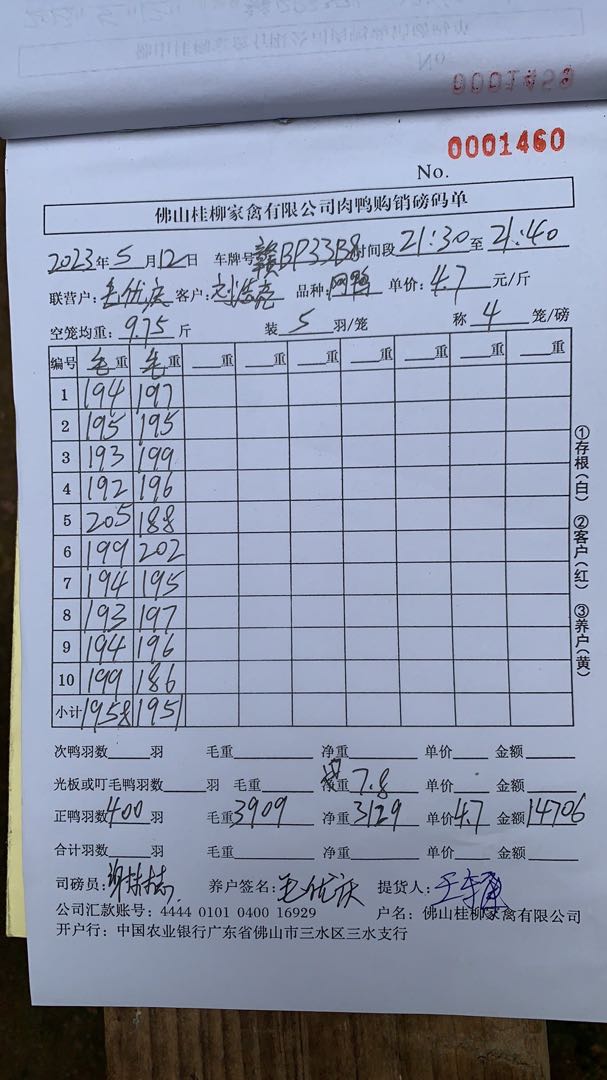 0001459
No.
0001460
No.
佛山桂柳家禽有限公司肉鸭购销磅码单
2023年5月12日 车牌号赣BP33B8时间段21:30至21:40
联营户:毛优庆 客户:刘浩亮 品种:网鸭 单价:4.7元/斤
空笼均重:9.75斤 装5羽/笼 称4笼/磅
编号 毛重 毛重 重 重 重 重 重 重
1 194 197
2 195 195
3 193 199
4 192 196
5 205 188
6 199 202
7 194 195
8 193 197
9 194 196
10 199 186
小计 1958 1951
①存根(白) ②客户(红) ③养户(黄)
次鸭羽数 羽 毛重 净重 单价 金额
光板或叮毛鸭羽数 羽 毛重 净重7.8 单价 金额
正鸭羽数400羽 毛重3909 净重3129 单价4.7 金额14706
合计羽数 羽 毛重 净重 单价 金额
司磅员: 养户签名:毛优庆 提货人:
公司汇款账号:4444 0101 0400 16929 户名:佛山桂柳家禽有限公司
开户行:中国农业银行广东省佛山市三水区三水支行